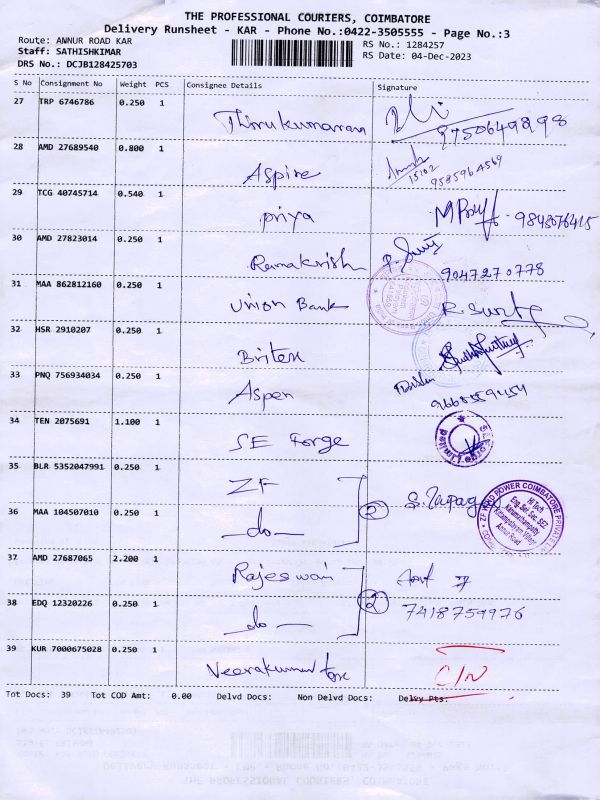 THE PROFESSIONAL COURIERS, COIMBATORE
Delivery Runsheet - KAR - Phone No.:0422-3505555 - Page No.:3
Route: ANNUR ROAD KAR RS No.: 1284257
Staff: SATHISHKIMAR RS Date: 04-Dec-2023
DRS No.: DCJB128425703
S No Consignment No Weight PCS Consignee Details Signature
27 TRP 6746786 0.250 1
Thirukumaran 9750649898
28 AMD 27689540 0.800 1
Aspire 15102 9585964569
29 TCG 40745714 0.540 1
priya 9843076415
30 AMD 27823014 0.250 1
Ramakrish 9047270778
31 MAA 862812160 0.250 1
Union Bank
32 HSR 2910207 0.250 1
Britex
33 PNQ 756934034 0.250 1
Aspen
34 TEN 2075691 1.100 1
SE Forge
35 BLR 5352047991 0.250 1
ZF
36 MAA 104507010 0.250 1
-do- 2
ZF WIND POWER COIMBATORE PRIVATE
Hi Tech
Eng. Sei. Sec. SEZ
Annur Road
37 AMD 27687065 2.200 1
Rajeswari
38 EDQ 12320226 0.250 1
-do- 2 7418759976
39 KUR 7000675028 0.250 1
Veerakumar C/N
Tot Docs: 39 Tot COD Amt: 0.00 Delvd Docs: Non Delvd Docs: Delvy Pts: